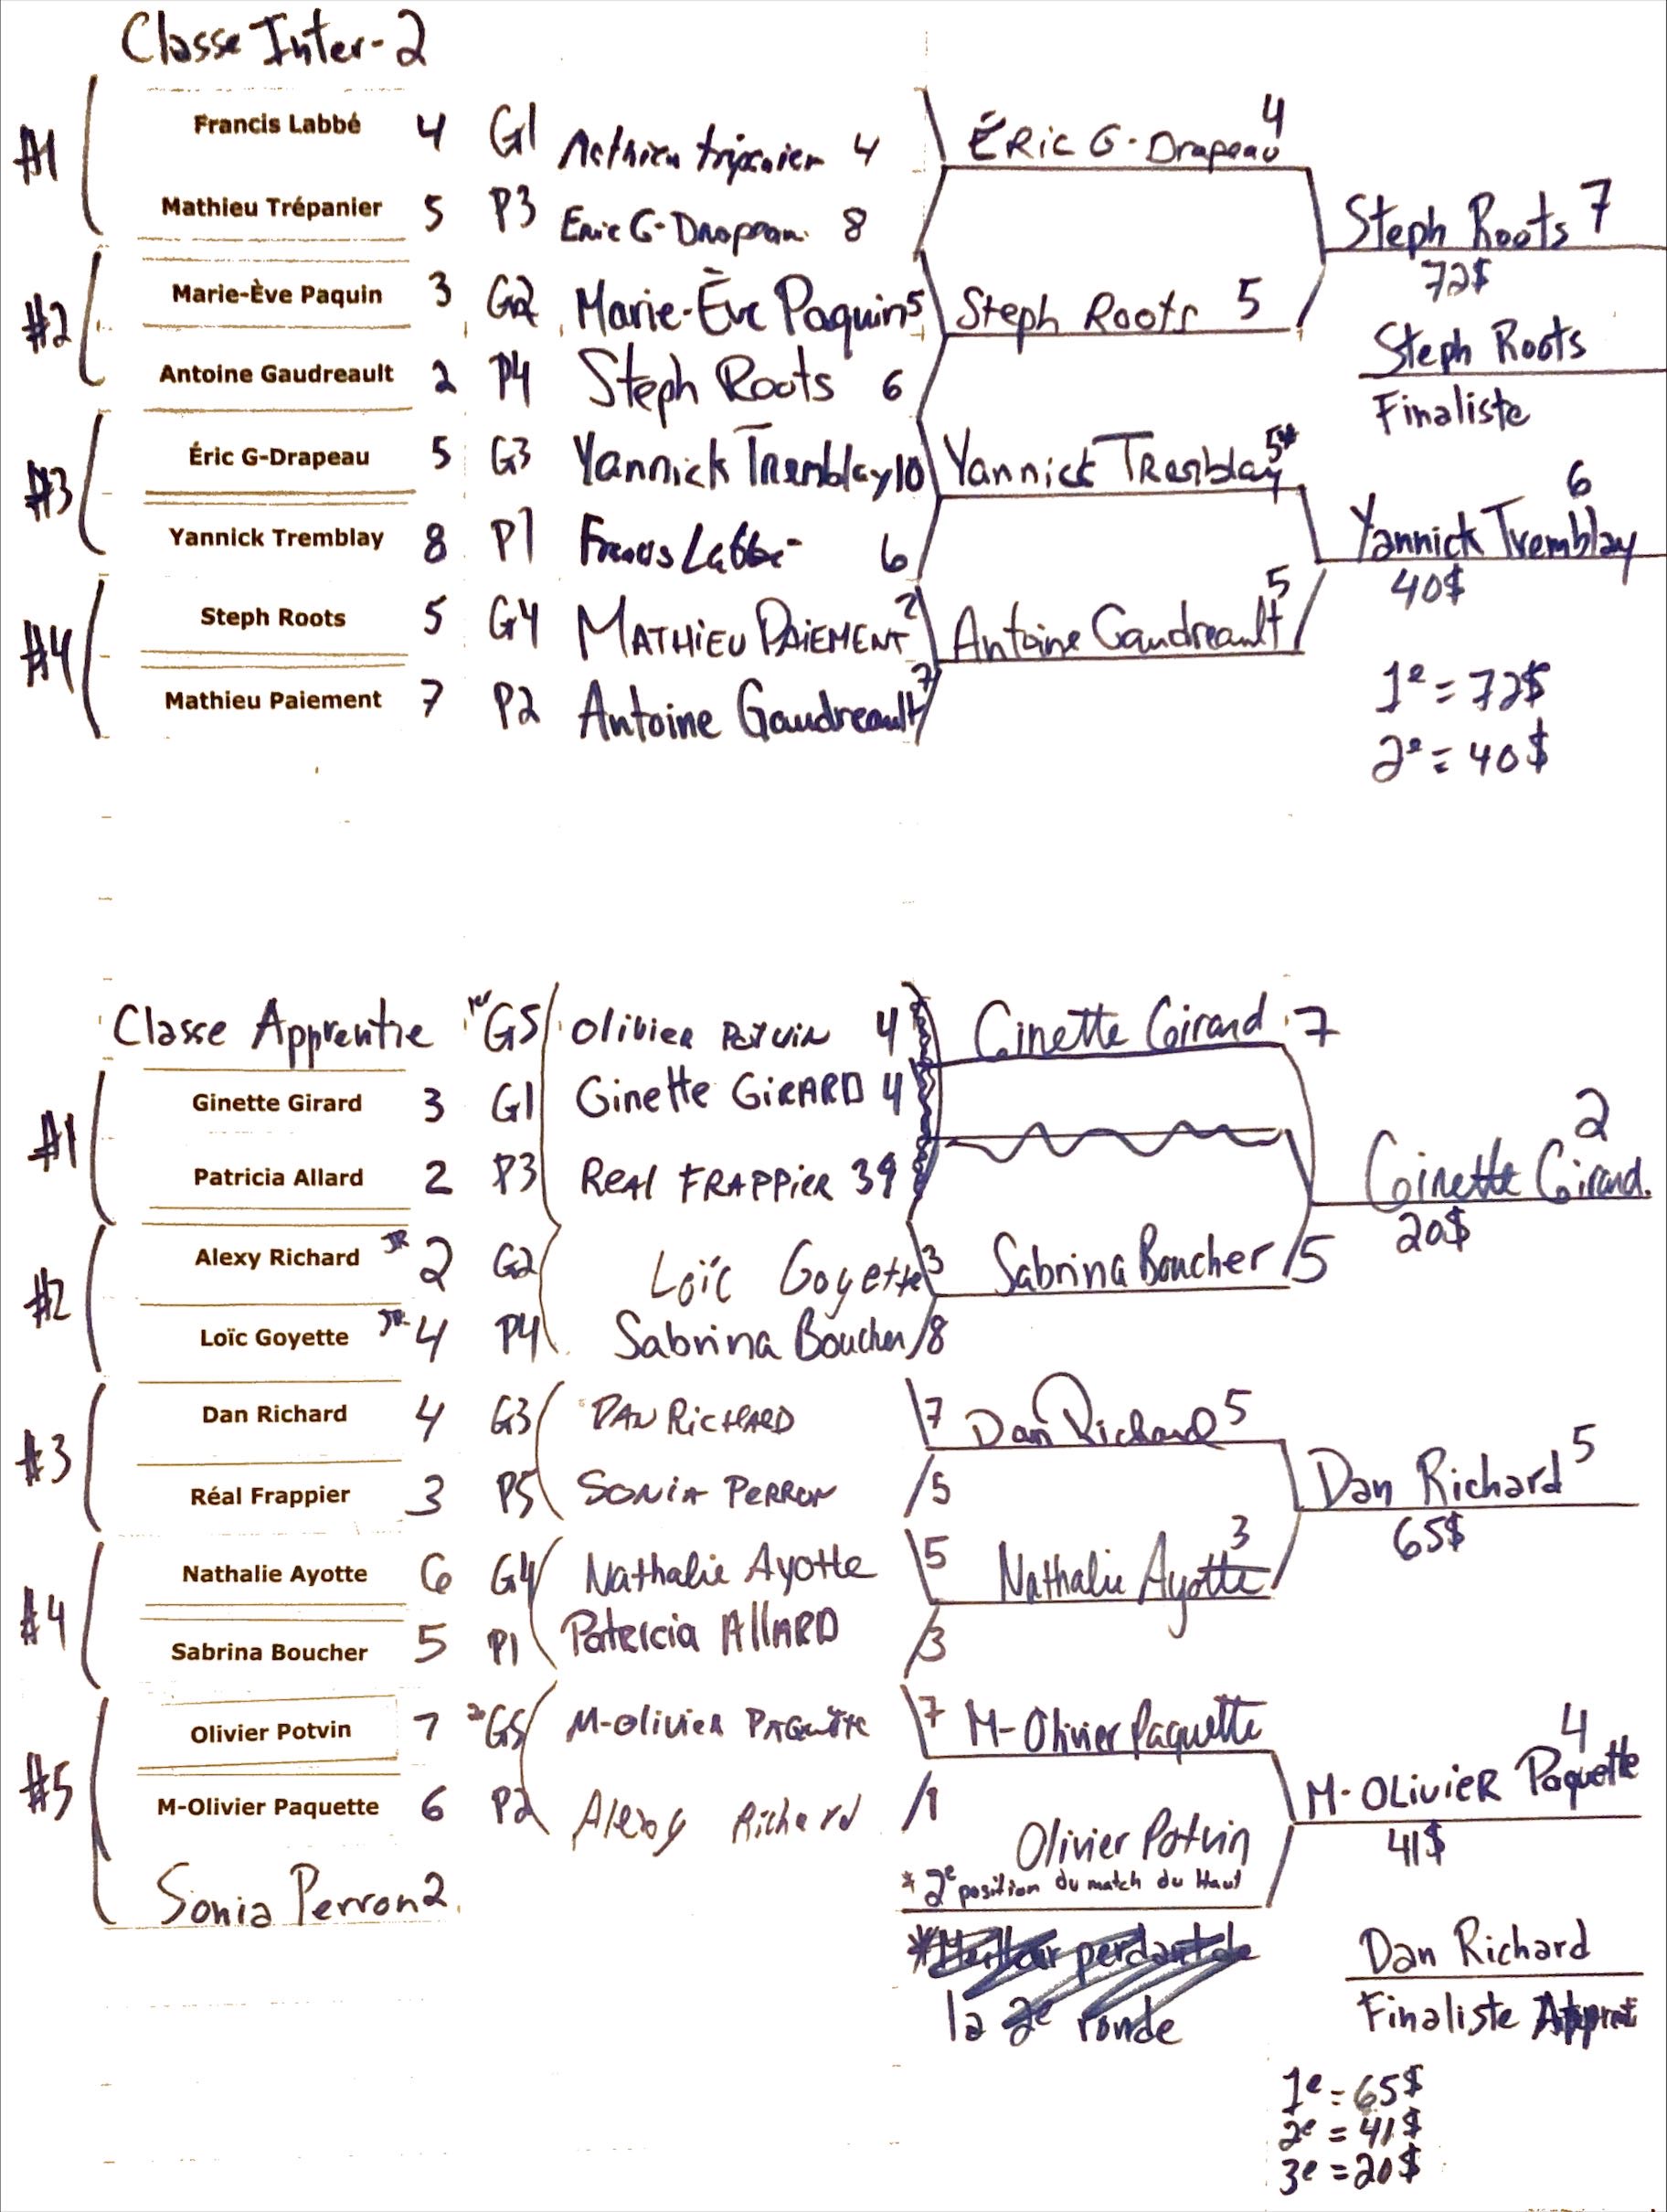 Classe Inter-2
#1
Francis Labbé 4 G1 Mathieu trépanier 4
Mathieu Trépanier 5 P3 Eric G-Drapeau 8
Éric G-Drapeau 4
#2
Marie-Ève Paquin 3 G2 Marie-Ève Paquin 5
Antoine Gaudreault 2 P4 Steph Roots 6
Steph Roots 5
Steph Roots 7
72$
Steph Roots
Finaliste
#3
Éric G-Drapeau 5 G3 Yannick Tremblay 10
Yannick Tremblay 8 P1 Francis Labbé 6
Yannick Tremblay 5*
#4
Steph Roots 5 G4 MATHIEU PAIEMENT 2
Mathieu Paiement 7 P2 Antoine Gaudreault 7
Antoine Gaudreault 5
Yannick Tremblay 6
40$
1e = 72$
2e = 40$
Classe Apprentie 1er G5 Olivier Potvin 4
#1
Ginette Girard 3 G1 Ginette GIRARD 4
Patricia Allard 2 P3 Real FRAPPIER 3
Ginette Girard 7
#2
Alexy Richard JR 2 G2 Loïc Goyette 3
Loïc Goyette JR 4 P4 Sabrina Boucher 8
Sabrina Boucher 5
Ginette Girard 2
20$
#3
Dan Richard 4 G3 DAN RICHARD 7
Réal Frappier 3 P5 SONIA PERRON 5
Dan Richard 5
#4
Nathalie Ayotte 6 G4 Nathalie Ayotte 5
Sabrina Boucher 5 P1 Patricia ALLARD 3
Nathalie Ayotte 3
Dan Richard 5
65$
#5
Olivier Potvin 7 2e G5 M-Olivier Paquette 7
M-Olivier Paquette 6 P2 Alexy Richard 1
Sonia Perron 2
M-Olivier Paquette
Olivier Potvin
*2e position du match du Haut
M-OLIVIER Paquette 4
41$
perdant de
la 2e ronde
Dan Richard
Finaliste
1e = 65$
2e = 41$
3e = 20$